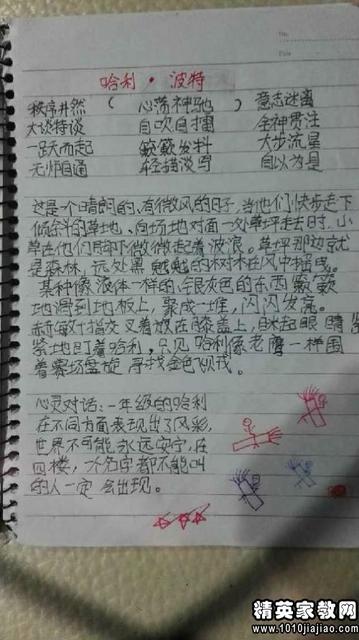 哈利·波特
秩序井然 ( 心荡神驰 ) 意志迷离
大谈特谈 自吹自擂 全神贯注
一跃而起 簌簌发抖 大步流星
无师自通 轻描淡写 自以为是
这是个晴朗的、有微风的日子,当他们快步走下
倾斜的草地、向场地对面一处草坪走去时,小
草在他们脚下微微起着波浪。草坪那边就
是森林,远处黑魆魆的树木在风中摇曳。
某种像液体一样的、银灰色的东西簌簌
地滑到地板上,聚成一堆,闪闪发亮。
赫敏手指交叉着放在膝盖上,眯起眼睛紧
紧地盯着哈利,只见哈利像老鹰一样围
着赛场盘旋 寻找金色飞贼。
心灵对话:一年级的哈利
在不同方面表现出了风彩,
世界不可能永远安宁,在
四楼,六名字都不能叫
的人一定会出现。
精英家教网
www.1010jiajiao.com